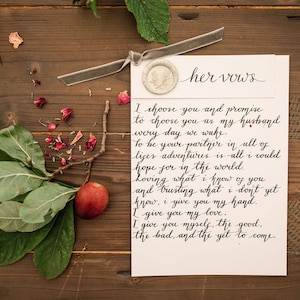 her vows
I choose you and promise
to choose you as my husband
every day we wake.
To be your partner in all of
lifes adventures is all i could
hope for in the world.
Loving what i know of you
and trusting what i dont yet
know, i give you my hand.
I give you my love.
I give you myself, the good,
the bad, and the yet to come.